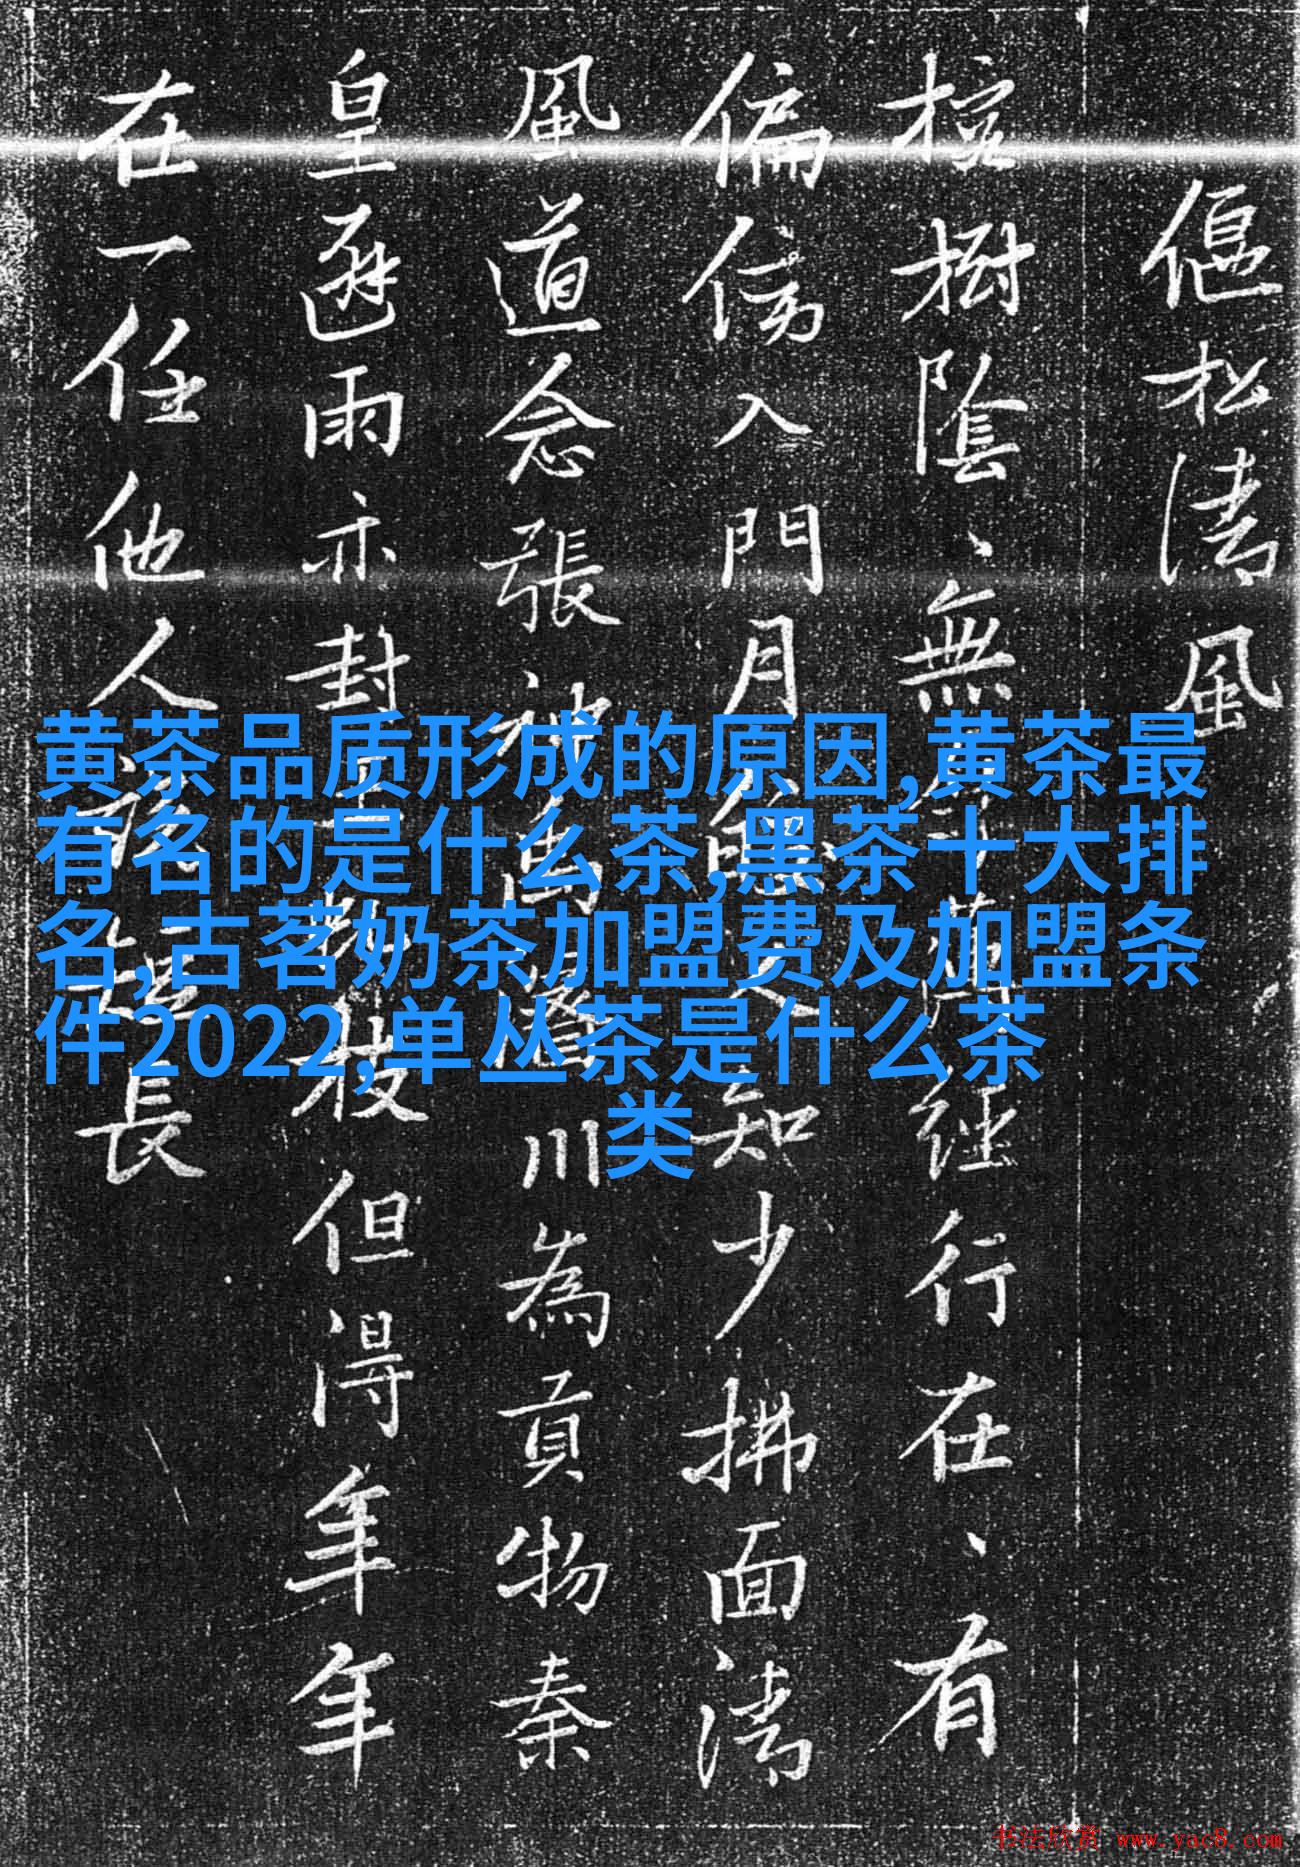 偃松清風
樹陰、無
經行在、有
偏傍入門月
知少拂面清
風道念張神
川為貢物秦
皇避雨亦封
枝但得年年
在一任他人
長
黄茶品质形成的原因,黄茶最
有名的是什么茶,黑茶十大排
名,古茗奶茶加盟费及加盟条
件2022,单丛茶是什么茶
类
书法欣赏 www.yac8.com